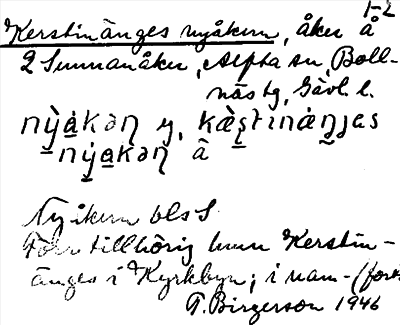 1-2
Kerstinänges nyåkern, åker å
2 Sunnanåker, Alfta sn, Boll-
näs tg, Gävl. l.
nỳa̱kəɳ y, kæ̀ʂtinæŋjas
nýa̱kəɳ â
Nyåkern bls 1
Förr tillhörig hmn Kerstin-
änges i Kyrkbyn; i nam- (forts
T. Birgerson 1946